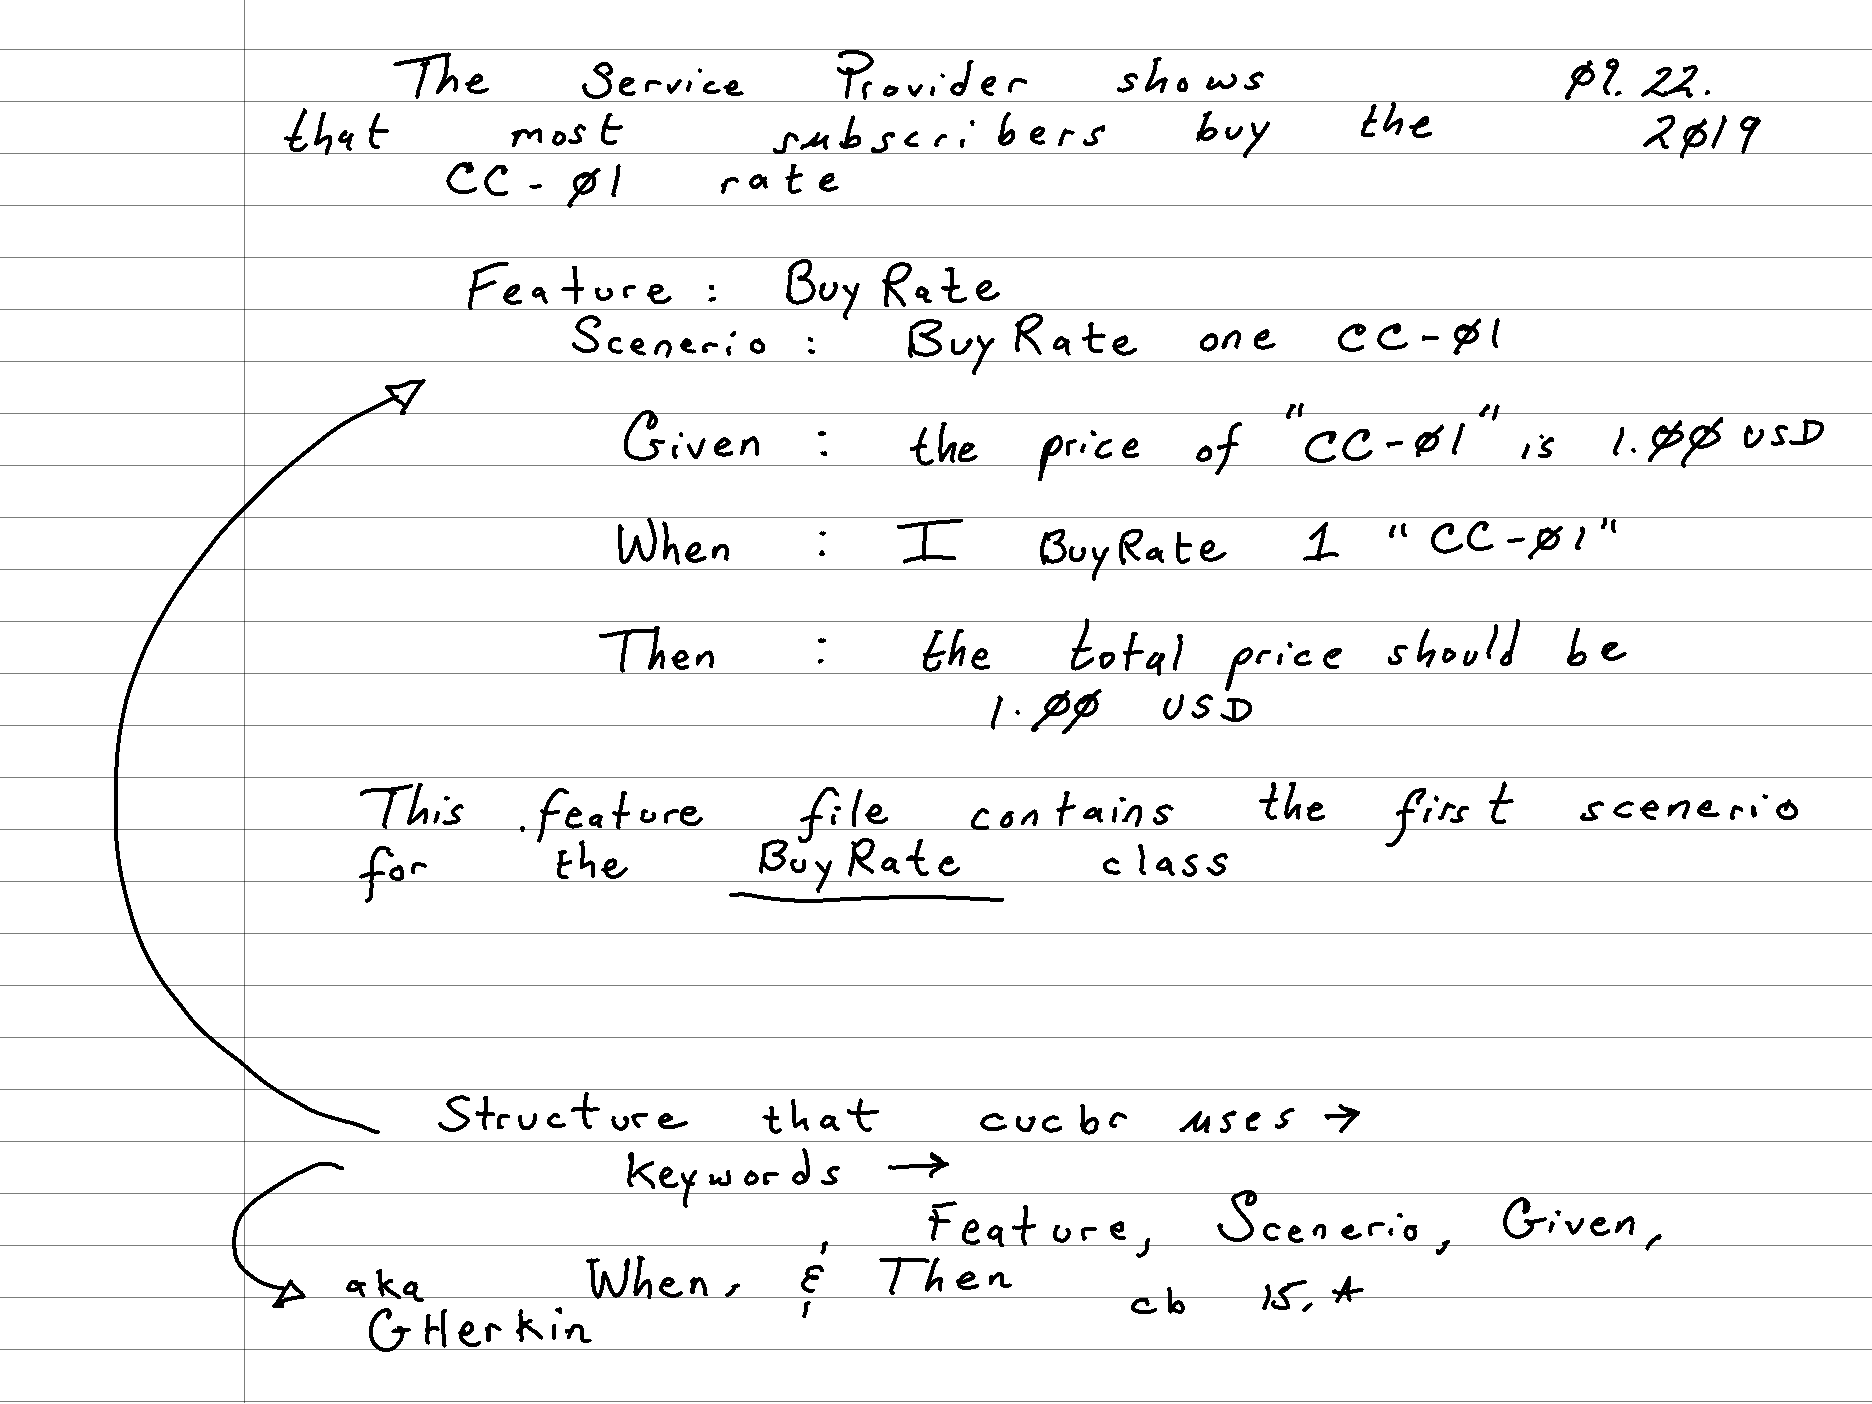 The Service Provider shows ø9.22.
that most subscribers buy the 2ø19
CC-ø1 rate
Feature : BuyRate
Scenerio : BuyRate one CC-ø1
Given : the price of "CC-ø1" is 1.øø USD
When : I BuyRate 1 "CC-ø1"
Then : the total price should be
1.øø USD
This .feature file contains the first scenerio
for the BuyRate class
Structure that cucbr uses →
keywords →
Feature, Scenerio, Given,
aka When, & Then cb 15.*
GHerkin